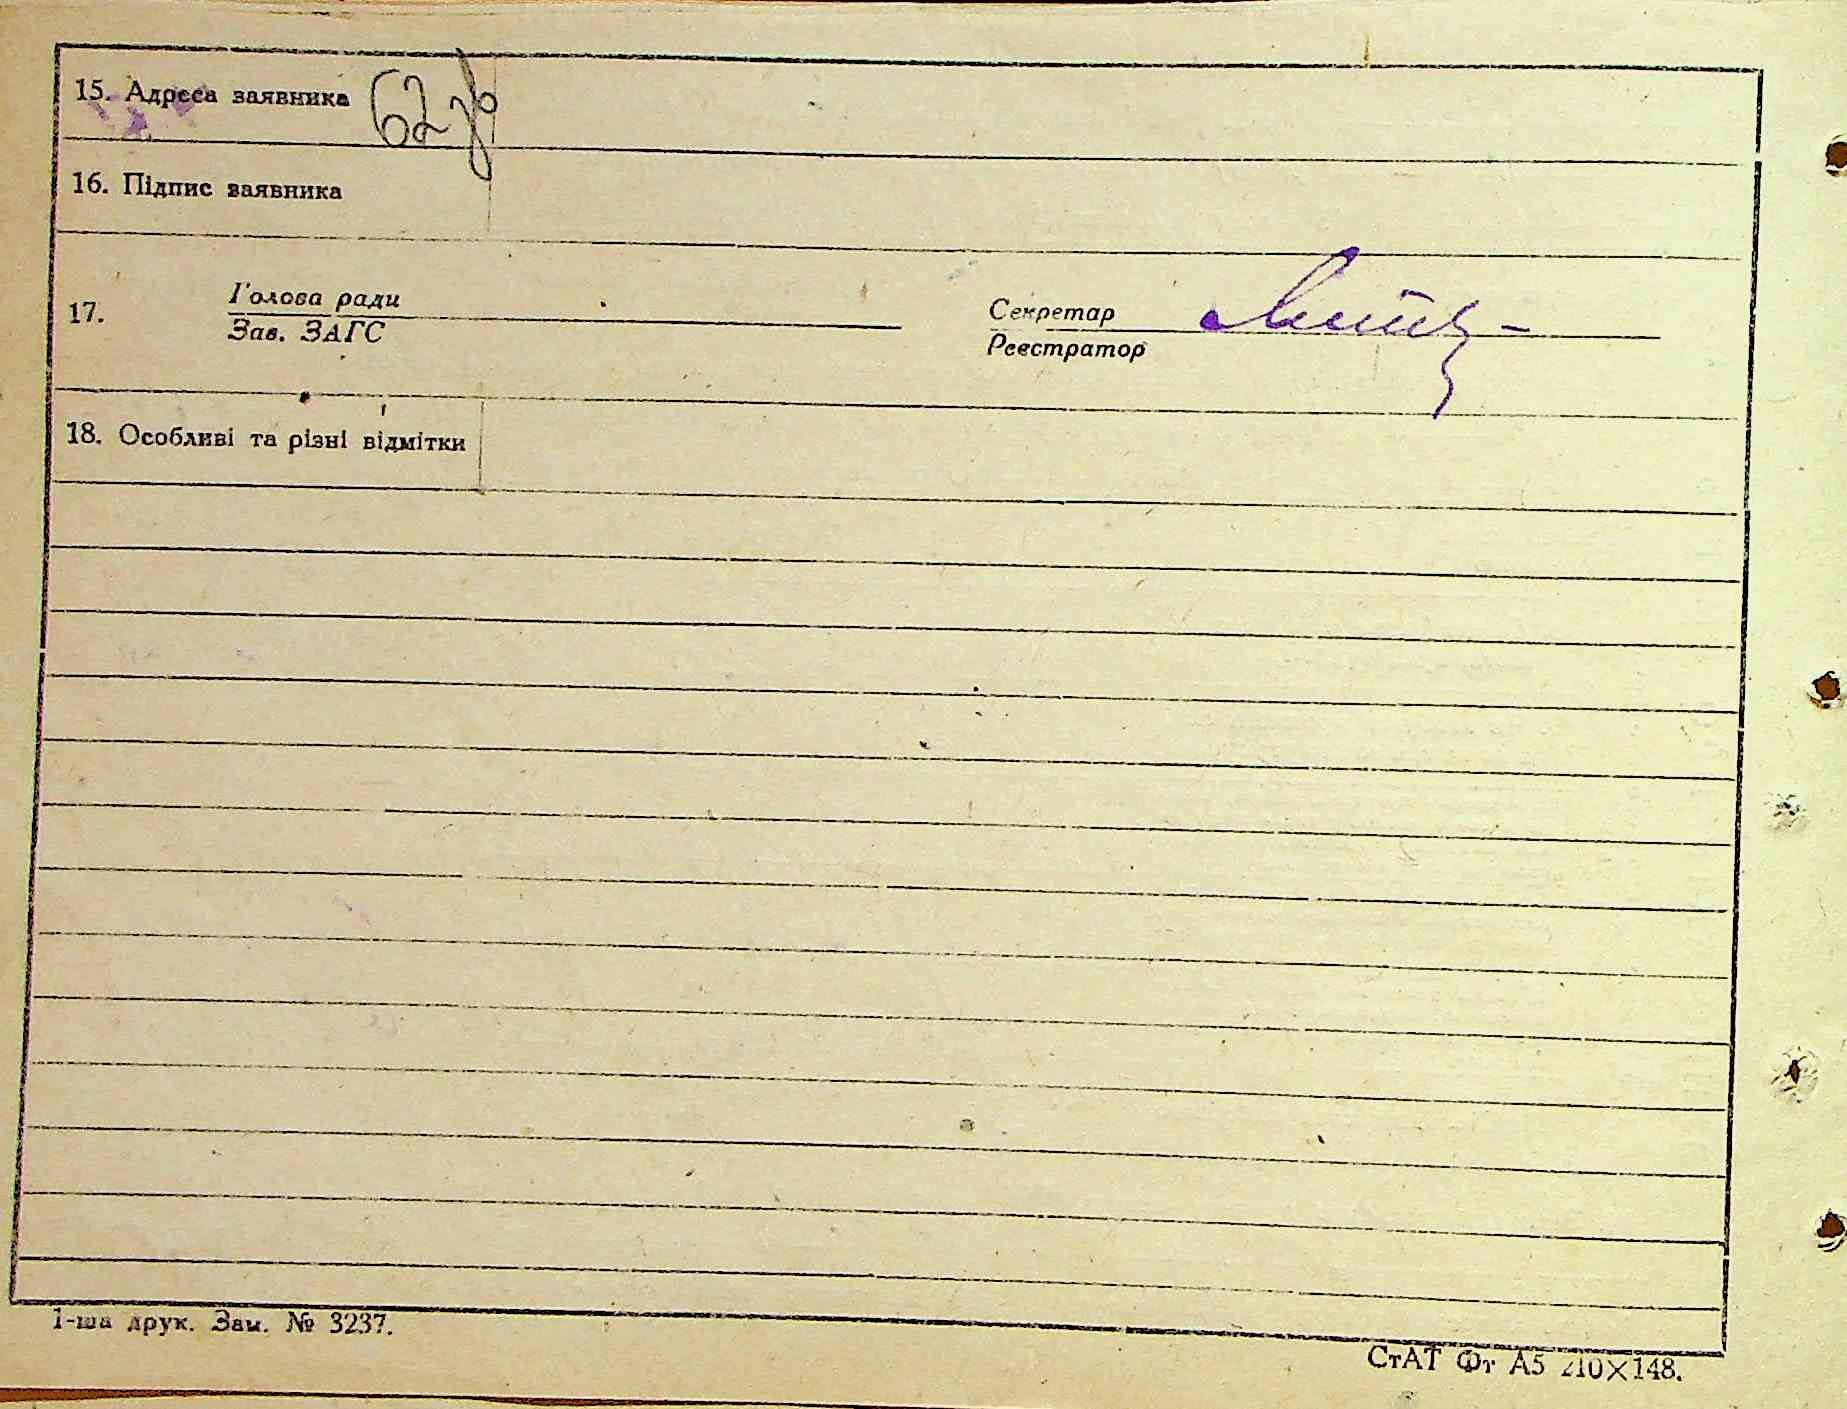 15. Адреса заявника 62
16. Підпис заявника
17.
Голова ради
Зав. ЗАГС
Секретар
Реєстратор
18. Особливі та різні відмітки
1-ша друк. Зам. № 3237.
СтАТ Фт А5 210×148.